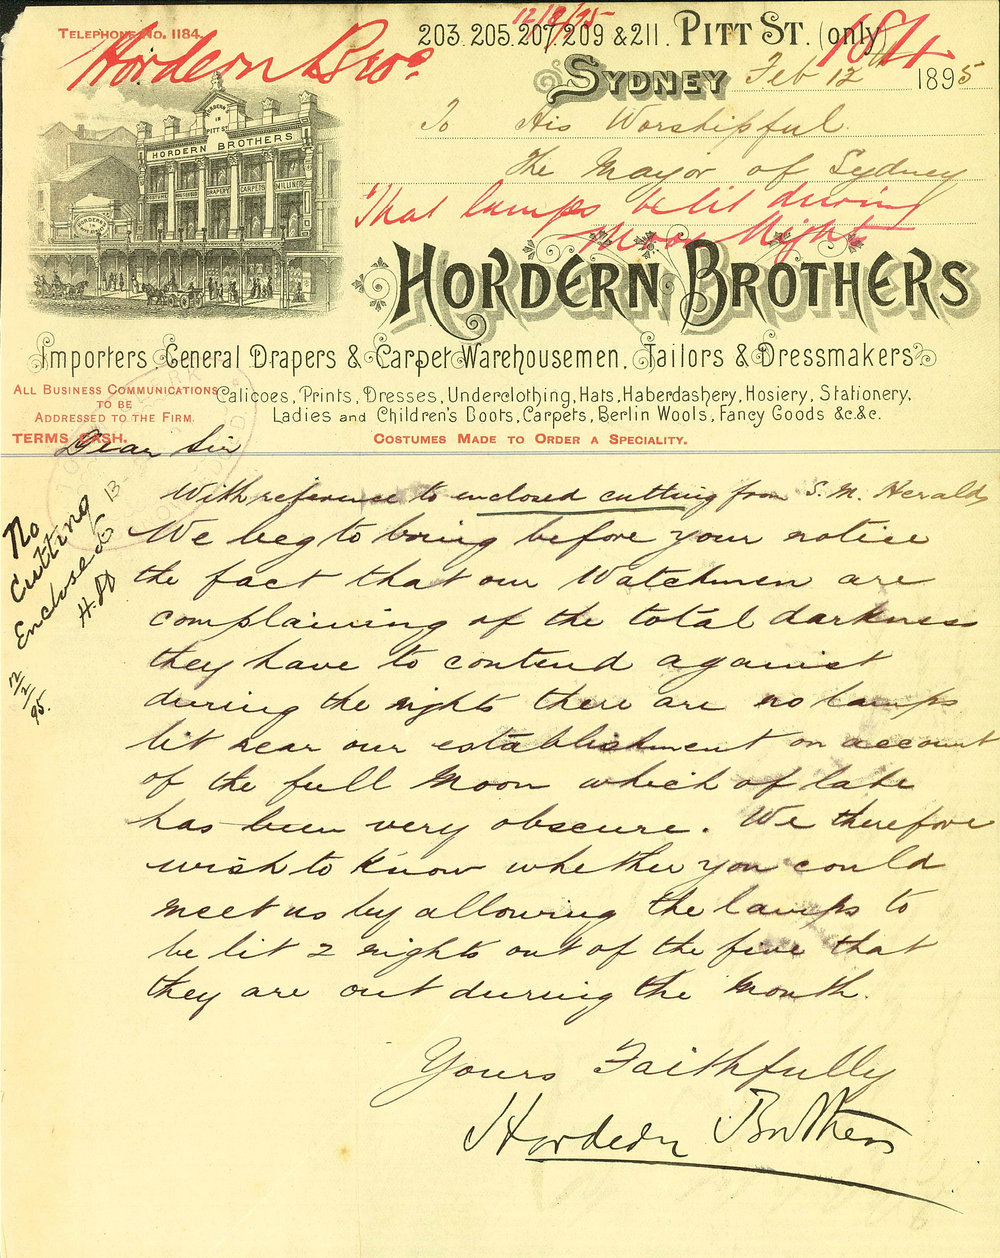 12/2/95
TELEPHONE No. 1184.
Hordern Bros
203. 205. 207. 209 & 211. PITT ST. (only)
184
SYDNEY Feb 12 1895
To His Worshipful
The Mayor of Sydney
That lamps be lit during
Moon Nights
HORDERNS
IN
PITT ST
HORDERN BROTHERS
DRAPERY CARPETS MILLINERY
HORDERN BROTHERS
IMPORTERS, GENERAL DRAPERS & CARPET WAREHOUSEMEN, TAILORS & DRESSMAKERS
ALL BUSINESS COMMUNICATIONS
TO BE
ADDRESSED TO THE FIRM.
CALICOES, PRINTS, DRESSES, UNDERCLOTHING, HATS, HABERDASHERY, HOSIERY, STATIONERY,
LADIES AND CHILDREN'S BOOTS, CARPETS, BERLIN WOOLS, FANCY GOODS &c.&c.
TERMS CASH.
COSTUMES MADE TO ORDER A SPECIALITY.
Dear Sir
With reference to enclosed cutting from S. M. Herald
We beg to bring before your notice
the fact that our Watchmen are
complaining of the total darkness
they have to contend against
during the nights there are no lamps
lit near our establishment on account
of the full Moon which of late
has been very obscure. We therefore
wish to know whether you could
meet us by allowing the lamps to
be lit 2 nights out of the five that
they are out during the Month.
Yours Faithfully
Hordern Brothers
No
Cutting
Enclosed
12/2/95.